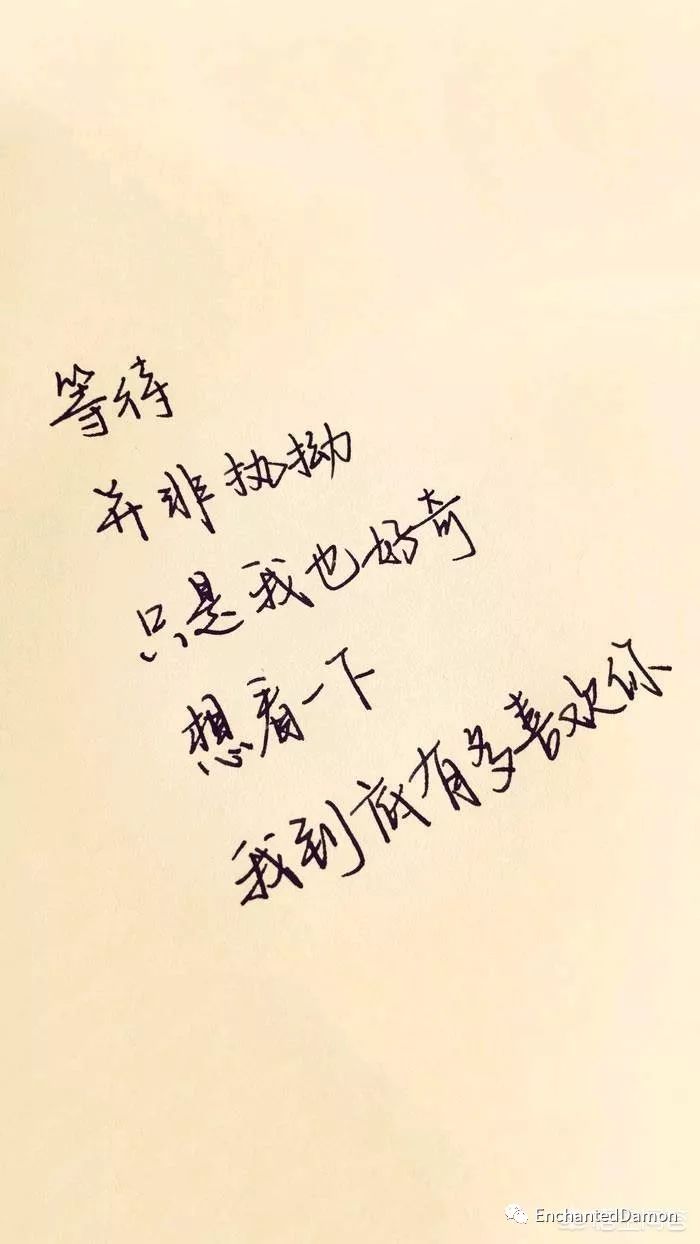 等待
并非执拗
只是我也好奇
想看一下
我到底有多喜欢你
EnchantedDamon